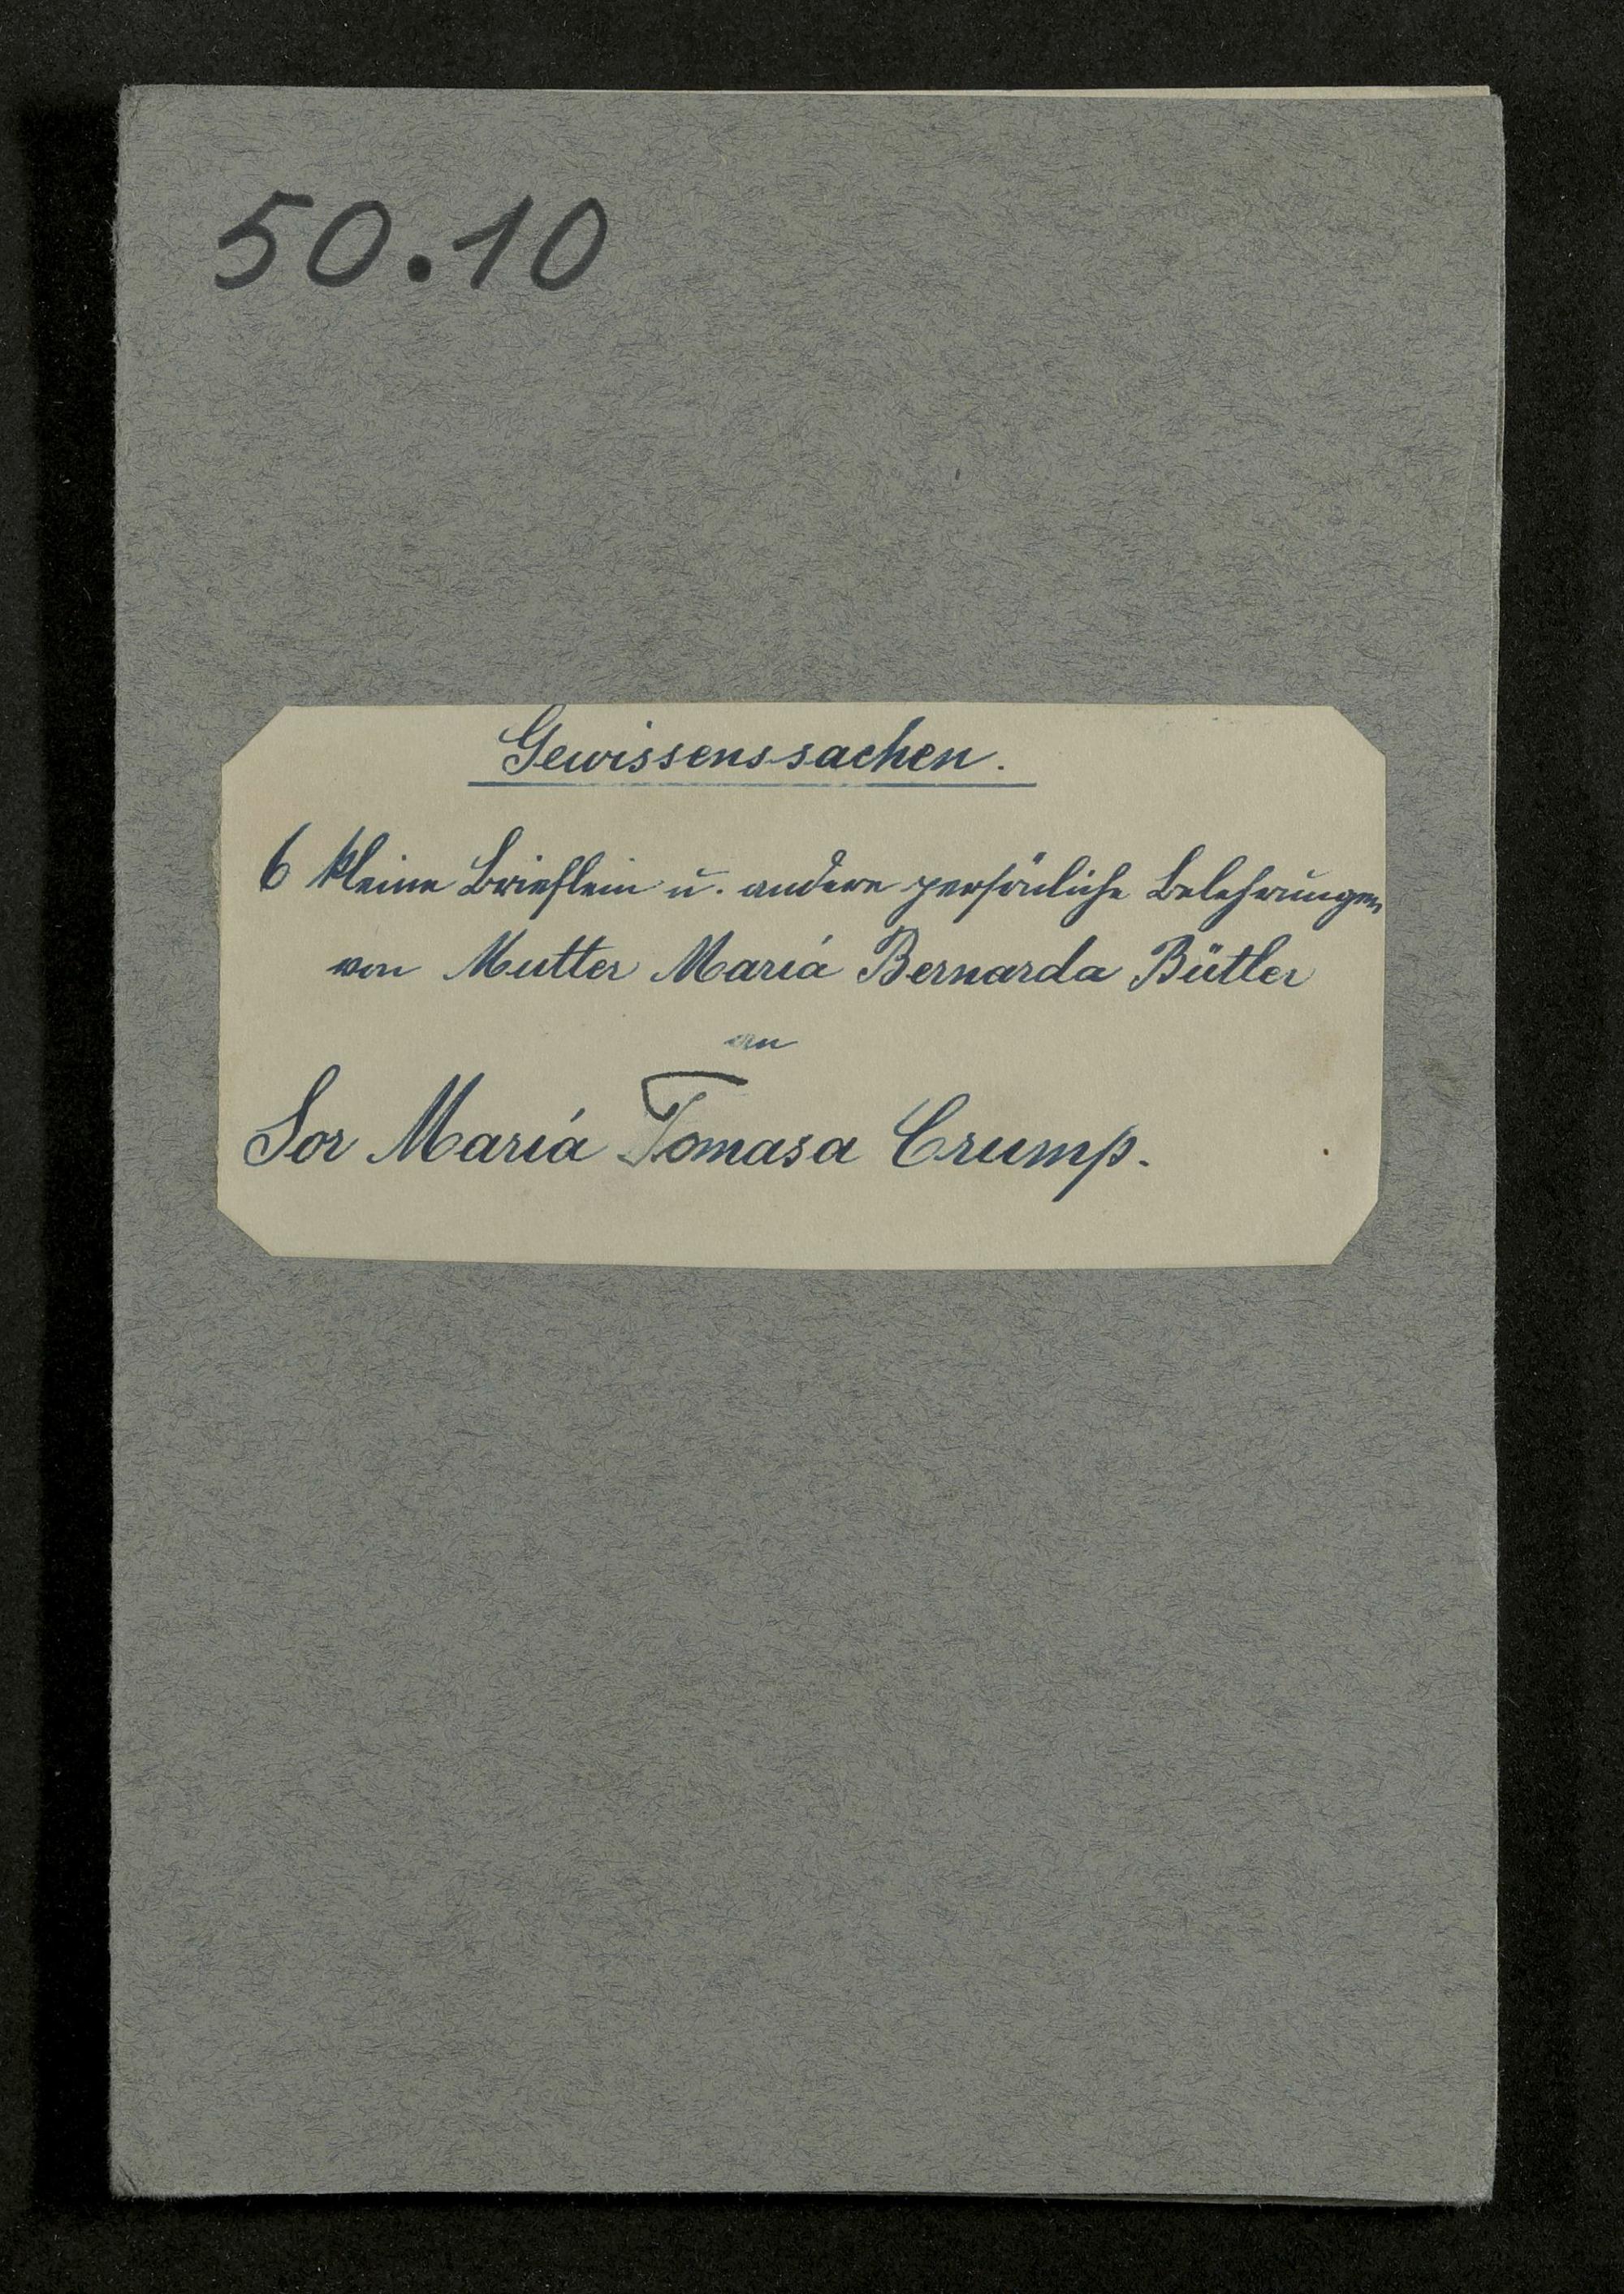 50.10
Gewissenssachen.
6 kleine Brieflein u. andere persönliche Belehrungen
von Mutter Mariá Bernarda Bütler
an
Sor Mariá Tomasa Crump.